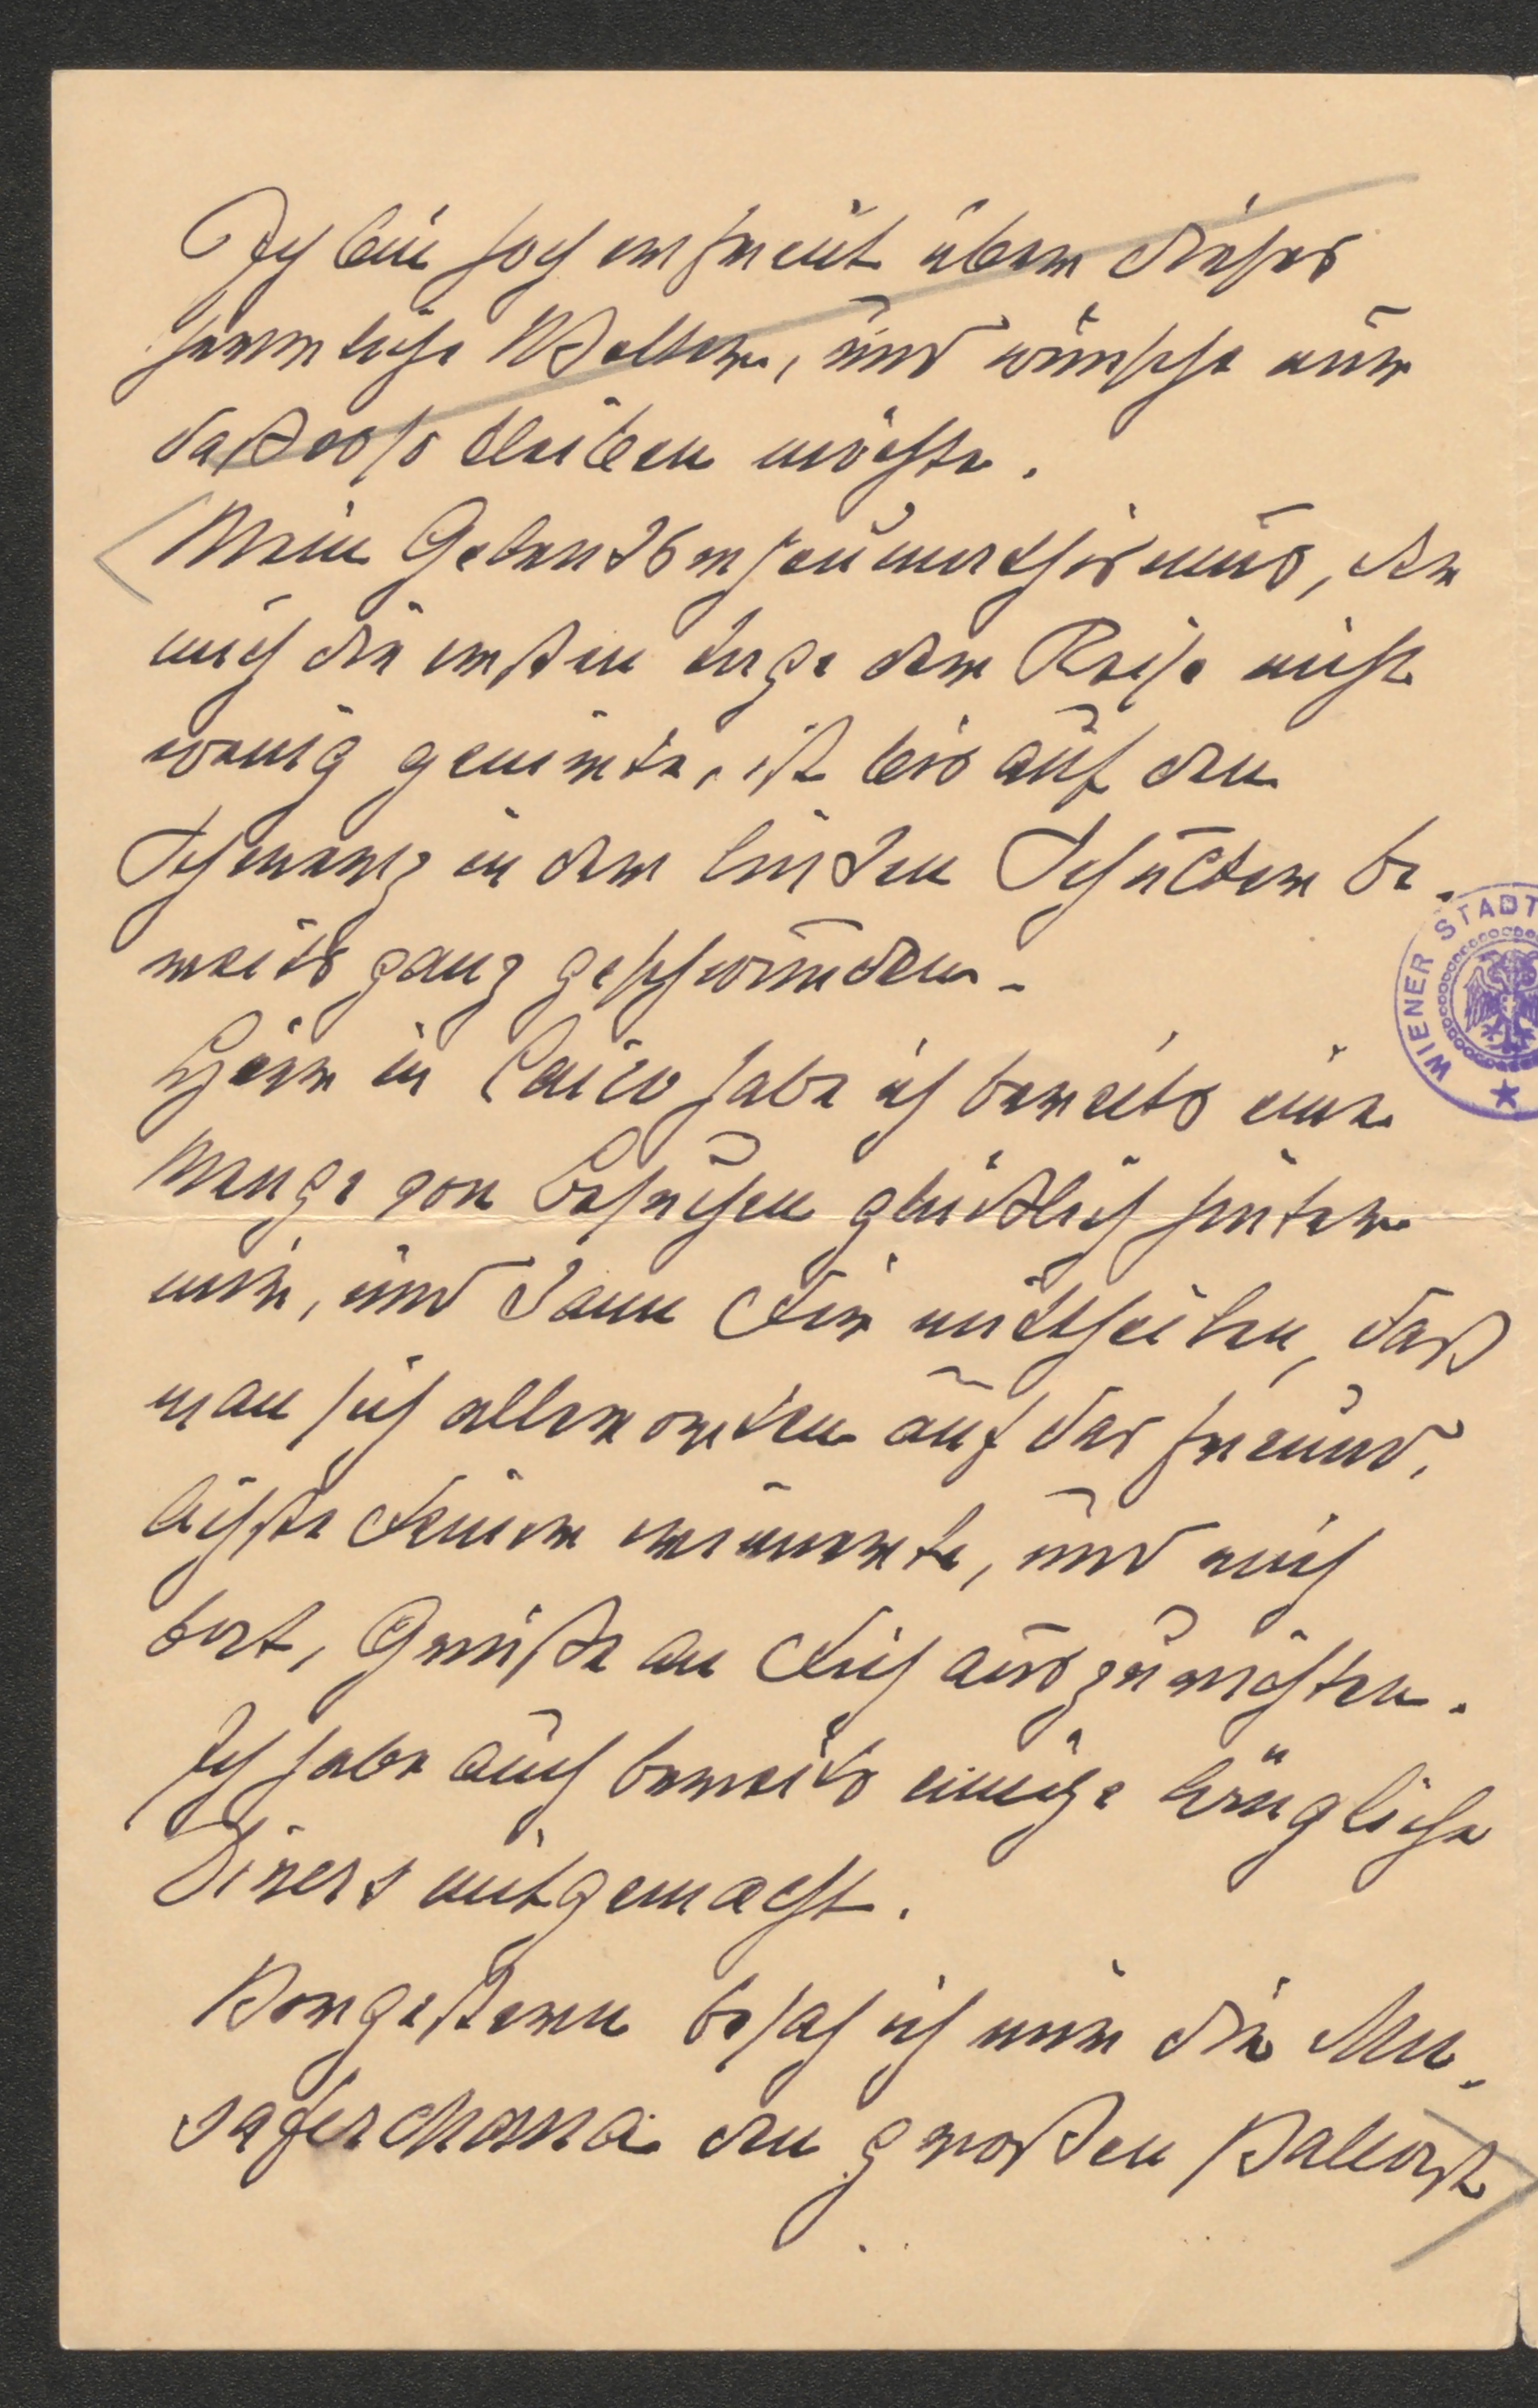 Ich bin hoch erfreut über dieses
herrliche Wetter, und wünsche nur
daß es so bleiben möchte.
Mein Gelenksrheumathismus, der
mich die ersten Tage der Reise nicht
wenig genirte, ist bis auf den
Schmerz in der linken Schulter be-
reits ganz geschwunden.
Hier in Cairo habe ich bereits eine
Menge von Besuchen glücklich hinter
mir, und kann Dir mittheilen, daß
man sich allerorten auf das freund-
lichste Deiner erinnerte, und mich
bat, Grüße an Dich auszurichten.
Ich habe auch bereits einige längliche
Diners mitgemacht.
Vorgestern besah ich mir die Mu-
saferchana den großen Palast
WIENER STADT